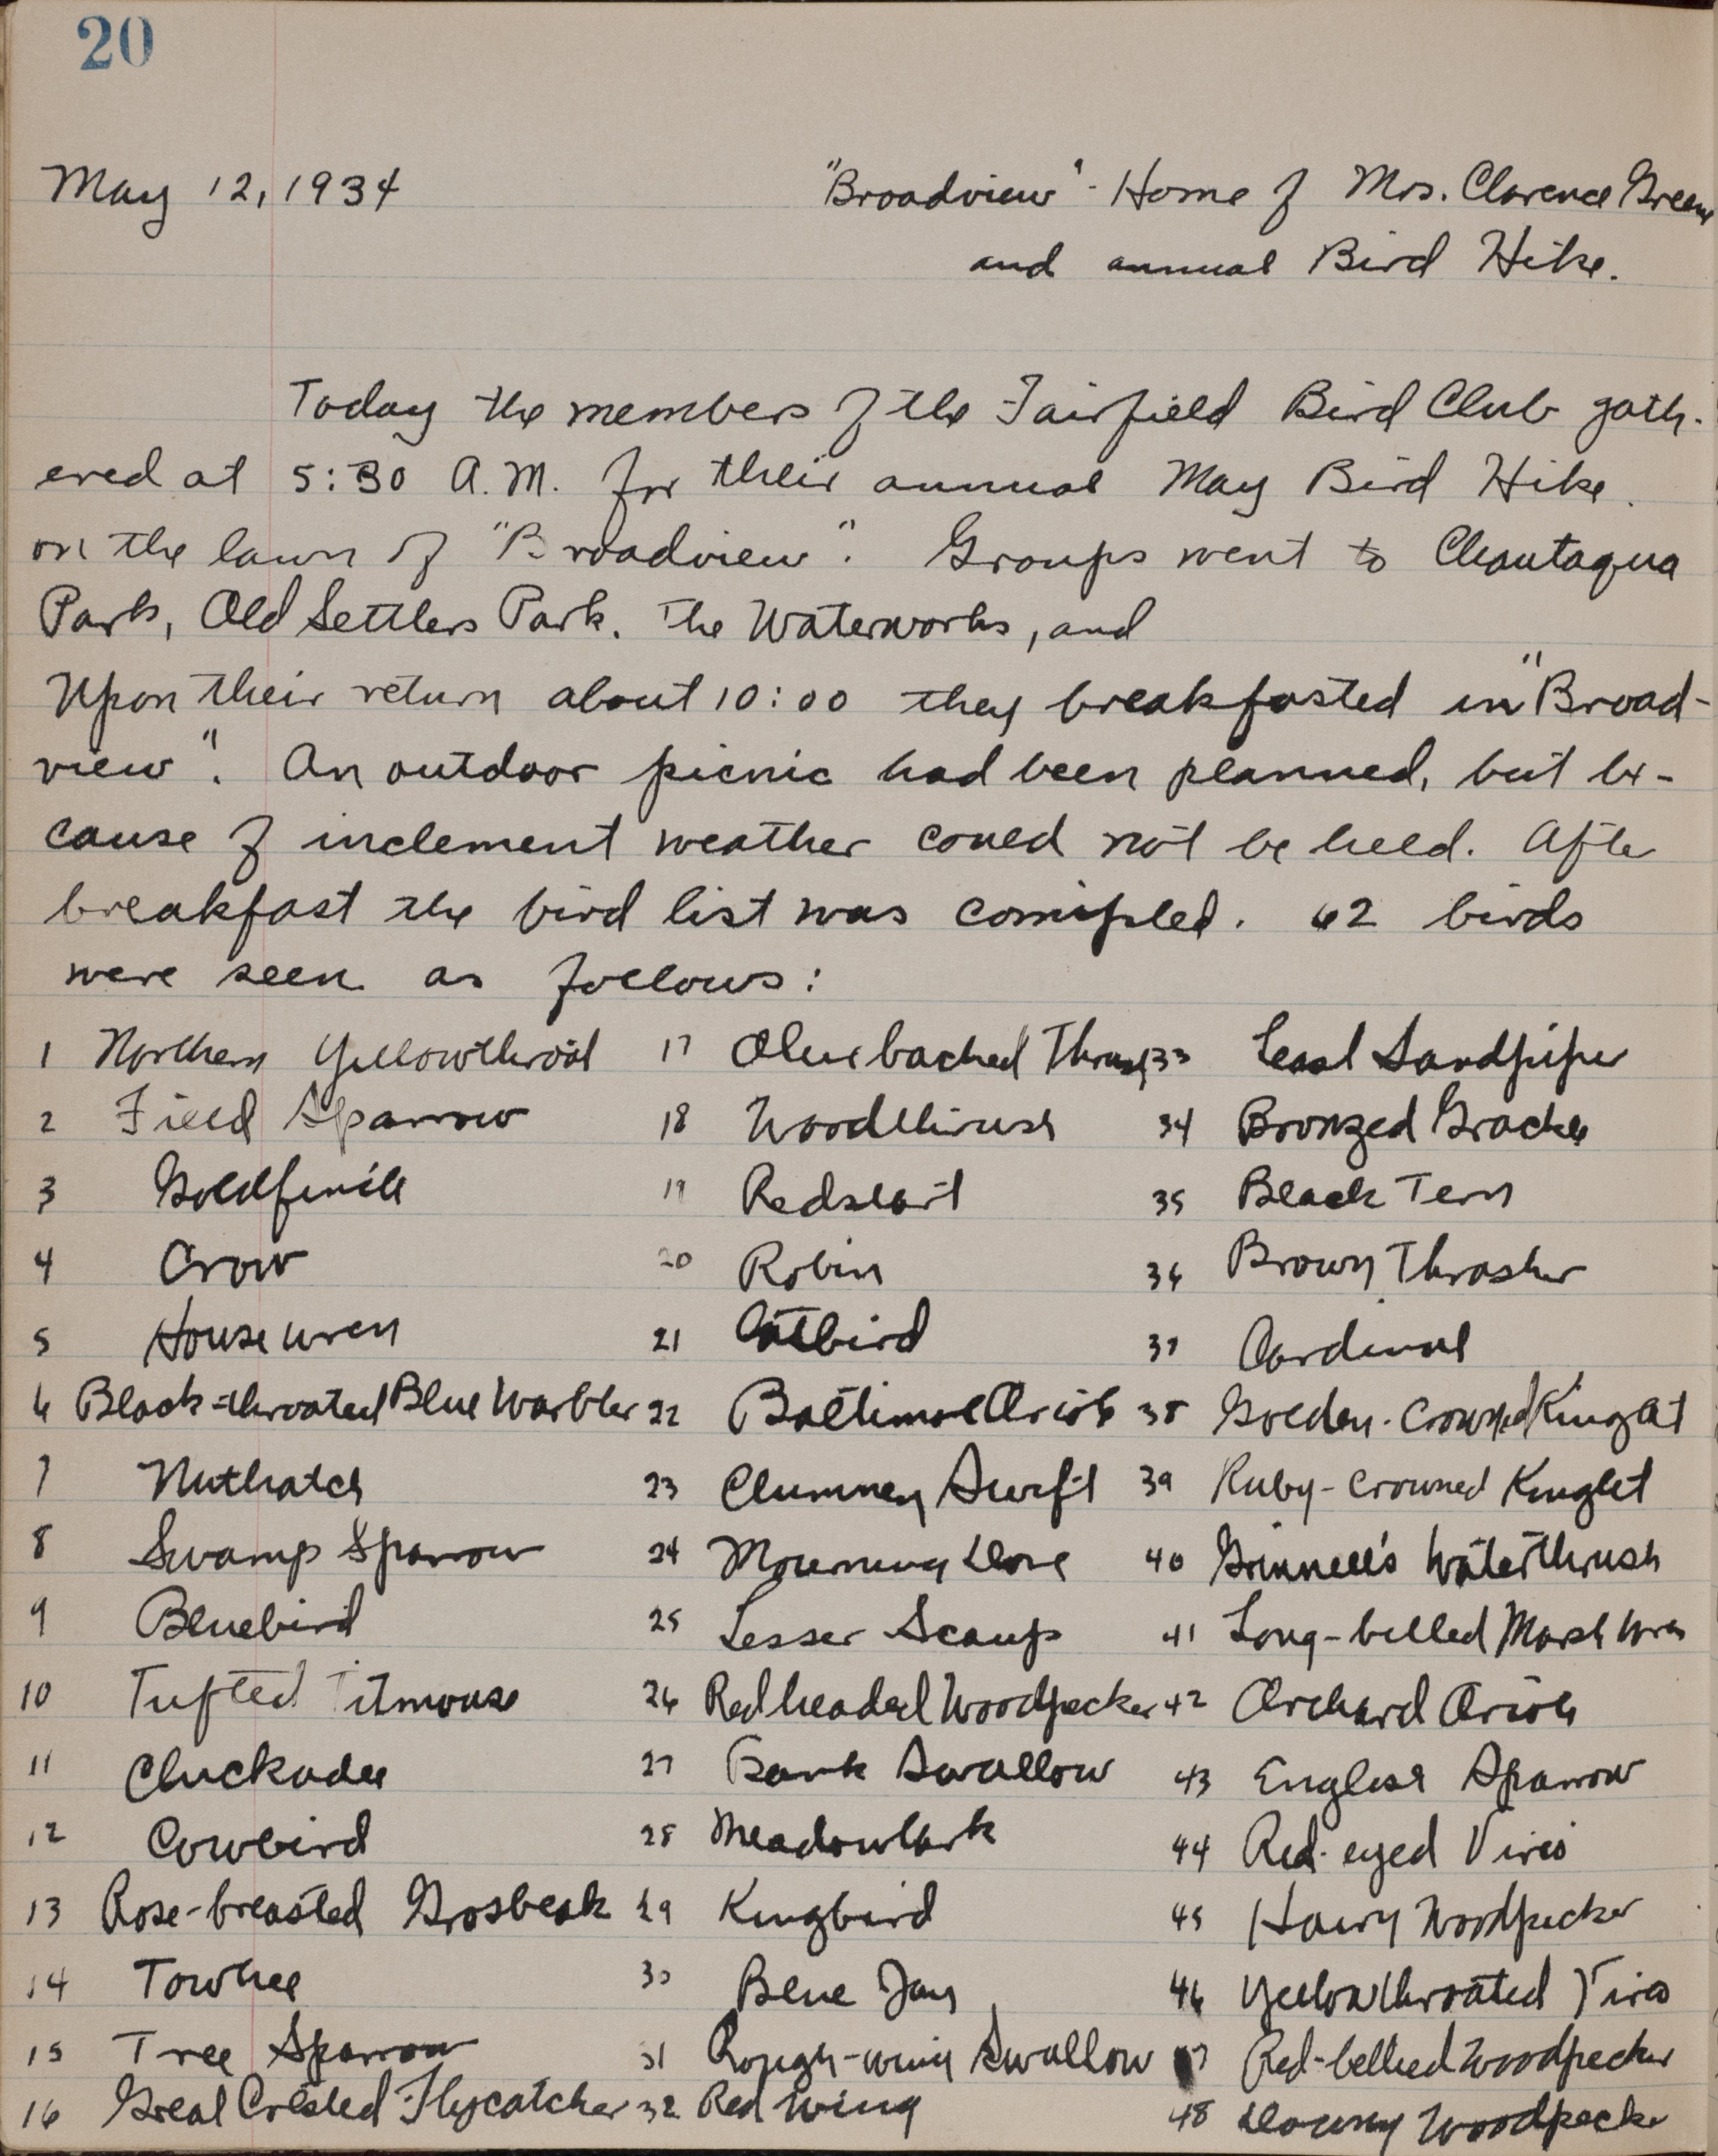 20
May 12, 1934
"Broadview" - Home of Mrs. Clarence Greene
and annual Bird Hike.
Today the members of the Fairfield Bird Club gath-
ered at 5:30 A.M. for their annual May Bird Hike
on the lawn of "Broadview". Groups went to Chautaqua
Park, Old Settlers Park. The Waterworks, and
Upon their return about 10:00 they breakfasted in "Broad-
view". An outdoor picnic had been planned, but be-
cause of inclement weather could not be held. After
breakfast the bird list was comipled. 62 birds
were seen as follows:
1 Northern Yellowthroat
2 Field Sparrow
3 Goldfinch
4 Crow
5 House wren
6 Black-throated Blue Warbler
7 Nuthatch
8 Swamp Sparrow
9 Bluebird
10 Tufted Titmouse
11 Chickadee
12 Cowbird
13 Rose-breasted Grosbeak
14 Towhee
15 Tree Sparrow
16 Great Crested Flycatcher
17 Olive backed Thrush
18 Woodthrush
19 Redstart
20 Robin
21 Catbird
22 Baltimore Oriole
23 Chimney Swift
24 Mourning Dove
25 Lesser Scaup
26 Redheaded Woodpecker
27 Bank Swallow
28 Meadowlark
29 Kingbird
30 Blue Jay
31 Rough-wing Swallow
32 Red Wing
33 Least Sandpiper
34 Bronzed Grackle
35 Black Tern
36 Brown Thrasher
37 Cardinal
38 Golden-Crowned Kinglet
39 Ruby-crowned Kinglet
40 Grinnell's Waterthrush
41 Long-billed Marsh Wren
42 Orchard Oriole
43 English Sparrow
44 Red-eyed Vireo
45 Hairy Woodpecker
46 Yellowthroated Vireo
47 Red-bellied Woodpecker
48 Downy Woodpecker